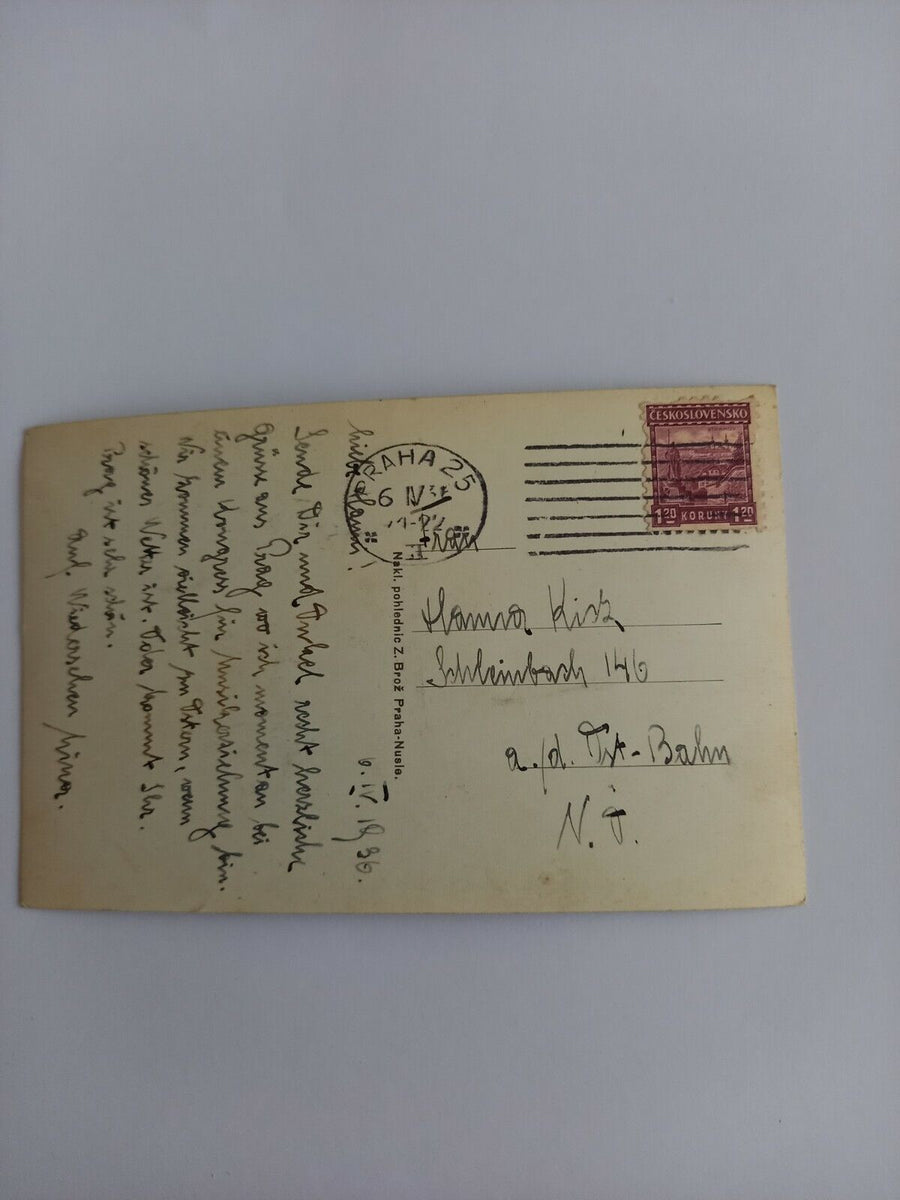 6. IV. 1936.
Liebe Hanni!
Sende Dir und Onkel recht herzliche
Grüsse aus Prag wo ich momentan bei
einem Kongress für Musikerziehung bin.
Wir kommen vielleicht zu Ostern, wenn
schönes Wetter ist. Oder kommt Ihr.
Prag ist sehr schön.
Auf Wiedersehen
Nakl. pohlednic Z. Brož Praha-Nusle.
PRAHA 25
6 IV 36
-22
ČESKOSLOVENSKO
1.20 KORUNY 1.20
Frau
Hanna
Schleinbach 146
a./d. Ost-Bahn
N. Ö.